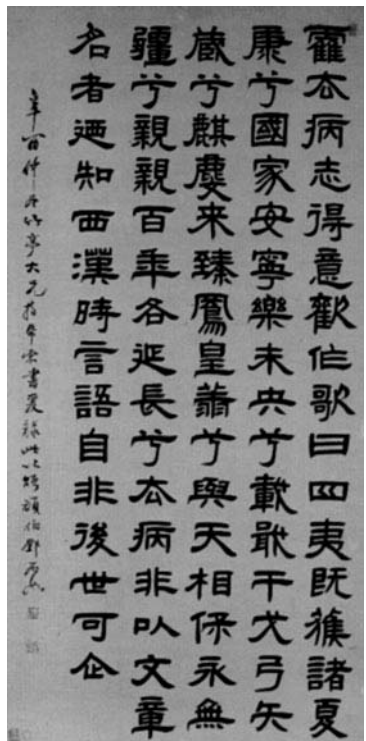 霍去病志得意歡作歌曰四夷既獲諸夏
康兮國家安寧樂未央兮載戢干戈弓矢
藏兮麒麐来臻鳳皇翔兮與天相保永無
疆兮親親百年各延長兮去病非以文章
名者迺知西漢時言語自非後世可企
辛酉仲冬竹亭大兄帛索書爰錄此以頑伯鄧石如